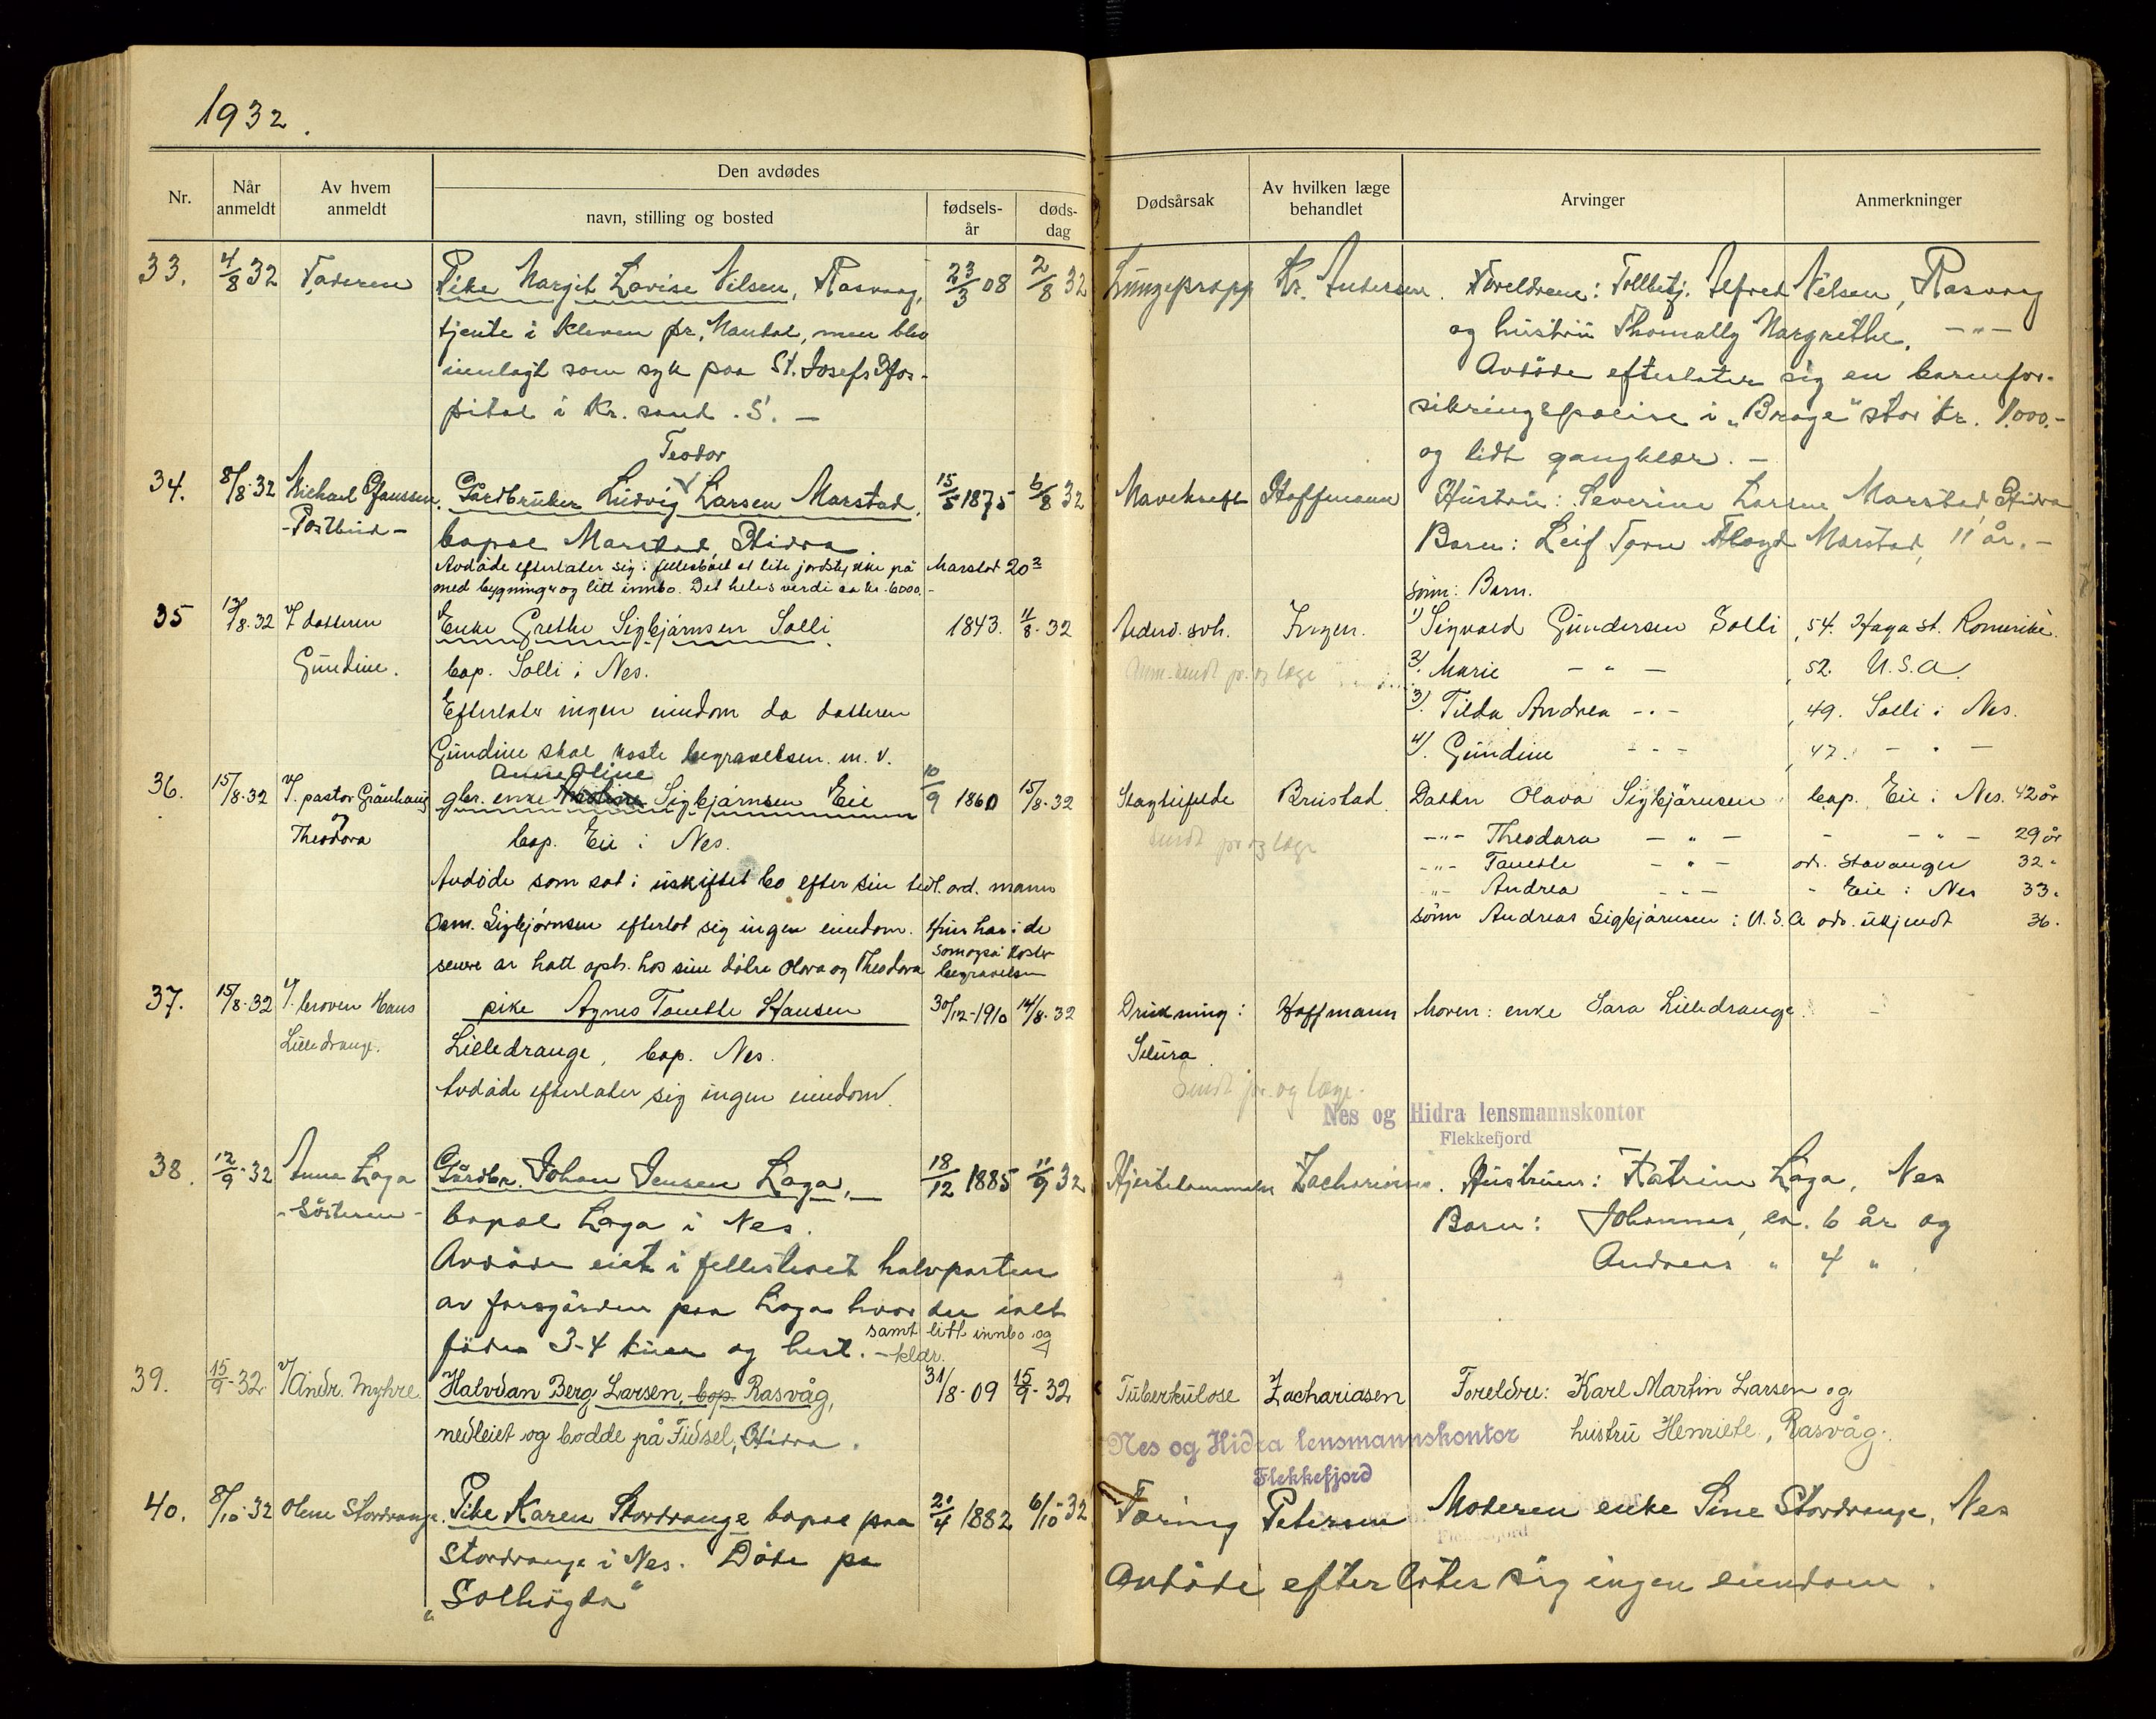 1932.
Nr. Når anmeldt Av hvem anmeldt Den avdødes navn, stilling og bosted fødsels-år døds-dag Dødsårsak Av hvilken læge behandlet Arvinger Anmerkninger
33. 4/8 32 Faderen Pike Margit Lovise Nilsen, Rasvaag, 23/3 08 2/8 32 Lungepropp Kr. Andersen. Foreldrene: Tollbetj. Alfred Nilsen, Rasvaag
tjente i Kleven pr. Mandal, men blev og hustru Thomally Margrethe, -"-
innlagt som syk paa St. Josefs Hos- Avdöde efterlater sig en barnefor-
pital i Kr. sand. S. - sikringspolise i "Brage" stor kr. 1.000.-
og lidt gangklær. -
Teodor
34. 8/8-32 Michael Hanssen, Gårdbruker Ludvig Larsen Marstad, 15/5 1875 6/8 32 Mavekreft Hoffmann Hustru: Severine Larsen Marstad, Hidra
-Postbud- bopæl Marstad, Hidra. Barn: Leif Marstad, 11 år. -
Avdøde efterlater sig i fellesboet et lite jordstykke på Marstad 20
med bygninger og litt innbo. Det heles verdi ca kr. 6000.- Barn.
35 /8-32 v/ datteren Enke Grethe Sigbjørnsen Solli 1843. 11/8-32 Alderd. svh. Ingen. 1) Sigvald Gundersen Solli, 54. Haga st. Romerike.
Gundine. bop. Solli i Nes. 2) Marie - " - , 52. U.S.A.
Efterlater ingen eiendom da datteren 3) Tilda Andrea -"- , 49. Solli i Nes.
Gundine skal koste begravelsen. m. v. 4) Gundine - " - , 47. - " -
Anne Oline
36. 15/8-32 v/. pastor Grånhaug gbr. enke Sigbjørnsen Eie 10/9 1860 15/8-32 Slagtilfelde Brustad. Datter Olava Sigbjørnsen bop. Eie i Nes. 42 år
og Theodora bop. Eie i Nes. Sendt pr og læge -"- Theodora - " - - - " - 29 år
Avdøde som sat i uskiftet bo efter sin tidl. avd. mann -"- Tanette - " - adr. Stavanger 32 "
-"- Andrea - " - - Eie i Nes 33 "
Osm. Sigbjørnsen efterlot sig ingen eiendom. Hun har i de sönn Andreas Sigbjørnsen i U.S.A adr. ukjendt 36 -
senere år hatt oph. hos sine døtre Olava og Theodora som også koster begravelsen
37. 15/8-32 v/. broren Hans pike Agnes Tanette Hansen 30/12-1910 14/8-32 Drukning i Hoffmann Moren: enke Sara Lilledrange.
Lilledrange. Lilledrange, bop. Nes. Selura
Avdøde efterlater sig ingen eiendom. Sendt pr. og læge.
Nes og Hidra lensmannskontor
Flekkefjord
38. 12/9-32 Anna Laga Gårdbr. Johan Jensen Laga, 18/12 1885 11/9 32 Hjertelammelse Zachariasen. Hustruen: Katrine Laga, Nes
-Sösteren- bopæl Laga i Nes. Barn: Johannes, ca. 6 år og
Avdöde eiet i fellesboet halvparten Andreas " 4 " .
av farsgården paa Laga hvor der ialt
födes 3-4 kuer og hest. - samt litt innbo og klær.
39. 15/9-32 v/ Andr. Myhre. Halvdan Berg Larsen, bop. Rasvåg, 31/8-09 15/9-32 Tuberkulose Zachariasen Foreldre: Karl Martin Larsen og
nedleiet og bodde på Fidsel, Hidra. hustru Henriete, Rasvåg.
Nes og Hidra lensmannskontor
Flekkefjord
40. 8/10-32 Olene Stordrange. Pike Karen Stordrange bopæl paa 21/4 1882 6/10-32 Tæring Petersen Moderen enke Sine Stordrange, Nes
Stordrange i Nes. Döde pa Avdöde efterlater sig ingen eiendom.
"Solhögda"